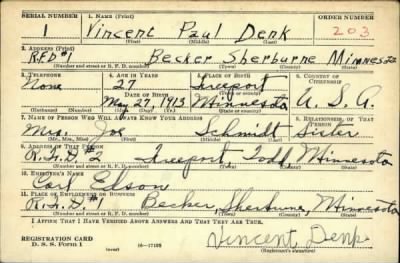 SERIAL NUMBER 1. NAME (Print) ORDER NUMBER
1 Vincent Paul Denk 203
(First) (Middle) (Last)
2. ADDRESS (Print)
R.F.D #1 Becker Sherburne Minnesota
(Number and street or R. F. D. number) (Town) (County) (State)
3. TELEPHONE 4. AGE IN YEARS 5. PLACE OF BIRTH 6. COUNTRY OF CITIZENSHIP
None 27 Freeport
DATE OF BIRTH (Town or county)
May 27, 1913 Minnesota U. S. A.
(Mo.) (Day) (Yr.) (State or country)
7. NAME OF PERSON WHO WILL ALWAYS KNOW YOUR ADDRESS 8. RELATIONSHIP OF THAT PERSON
Mrs. Joe Schmidt Sister
(Mr., Mrs., Miss) (First) (Middle) (Last)
9. ADDRESS OF THAT PERSON
R.F.D. #2 Freeport, Todd, Minnesota
(Number and street or R. F. D. number) (Town) (County) (State)
10. EMPLOYER'S NAME
Carl Edson
11. PLACE OF EMPLOYMENT OR BUSINESS
R.F.D. #1 Becker, Sherburne, Minnesota
(Number and street or R. F. D. number) (Town) (County) (State)
I AFFIRM THAT I HAVE VERIFIED ABOVE ANSWERS AND THAT THEY ARE TRUE.
REGISTRATION CARD
D. S. S. Form 1 (over) 16—17105 Vincent Denk
(Registrant's signature)